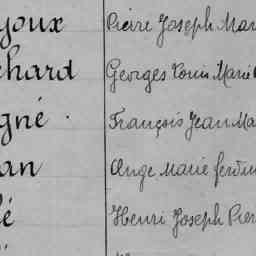 youx Pierre Joseph Mar
chard Georges Louis Marie
gné. François Jean Ma
an Ange Marie ferdin
é Henri Joseph Pier